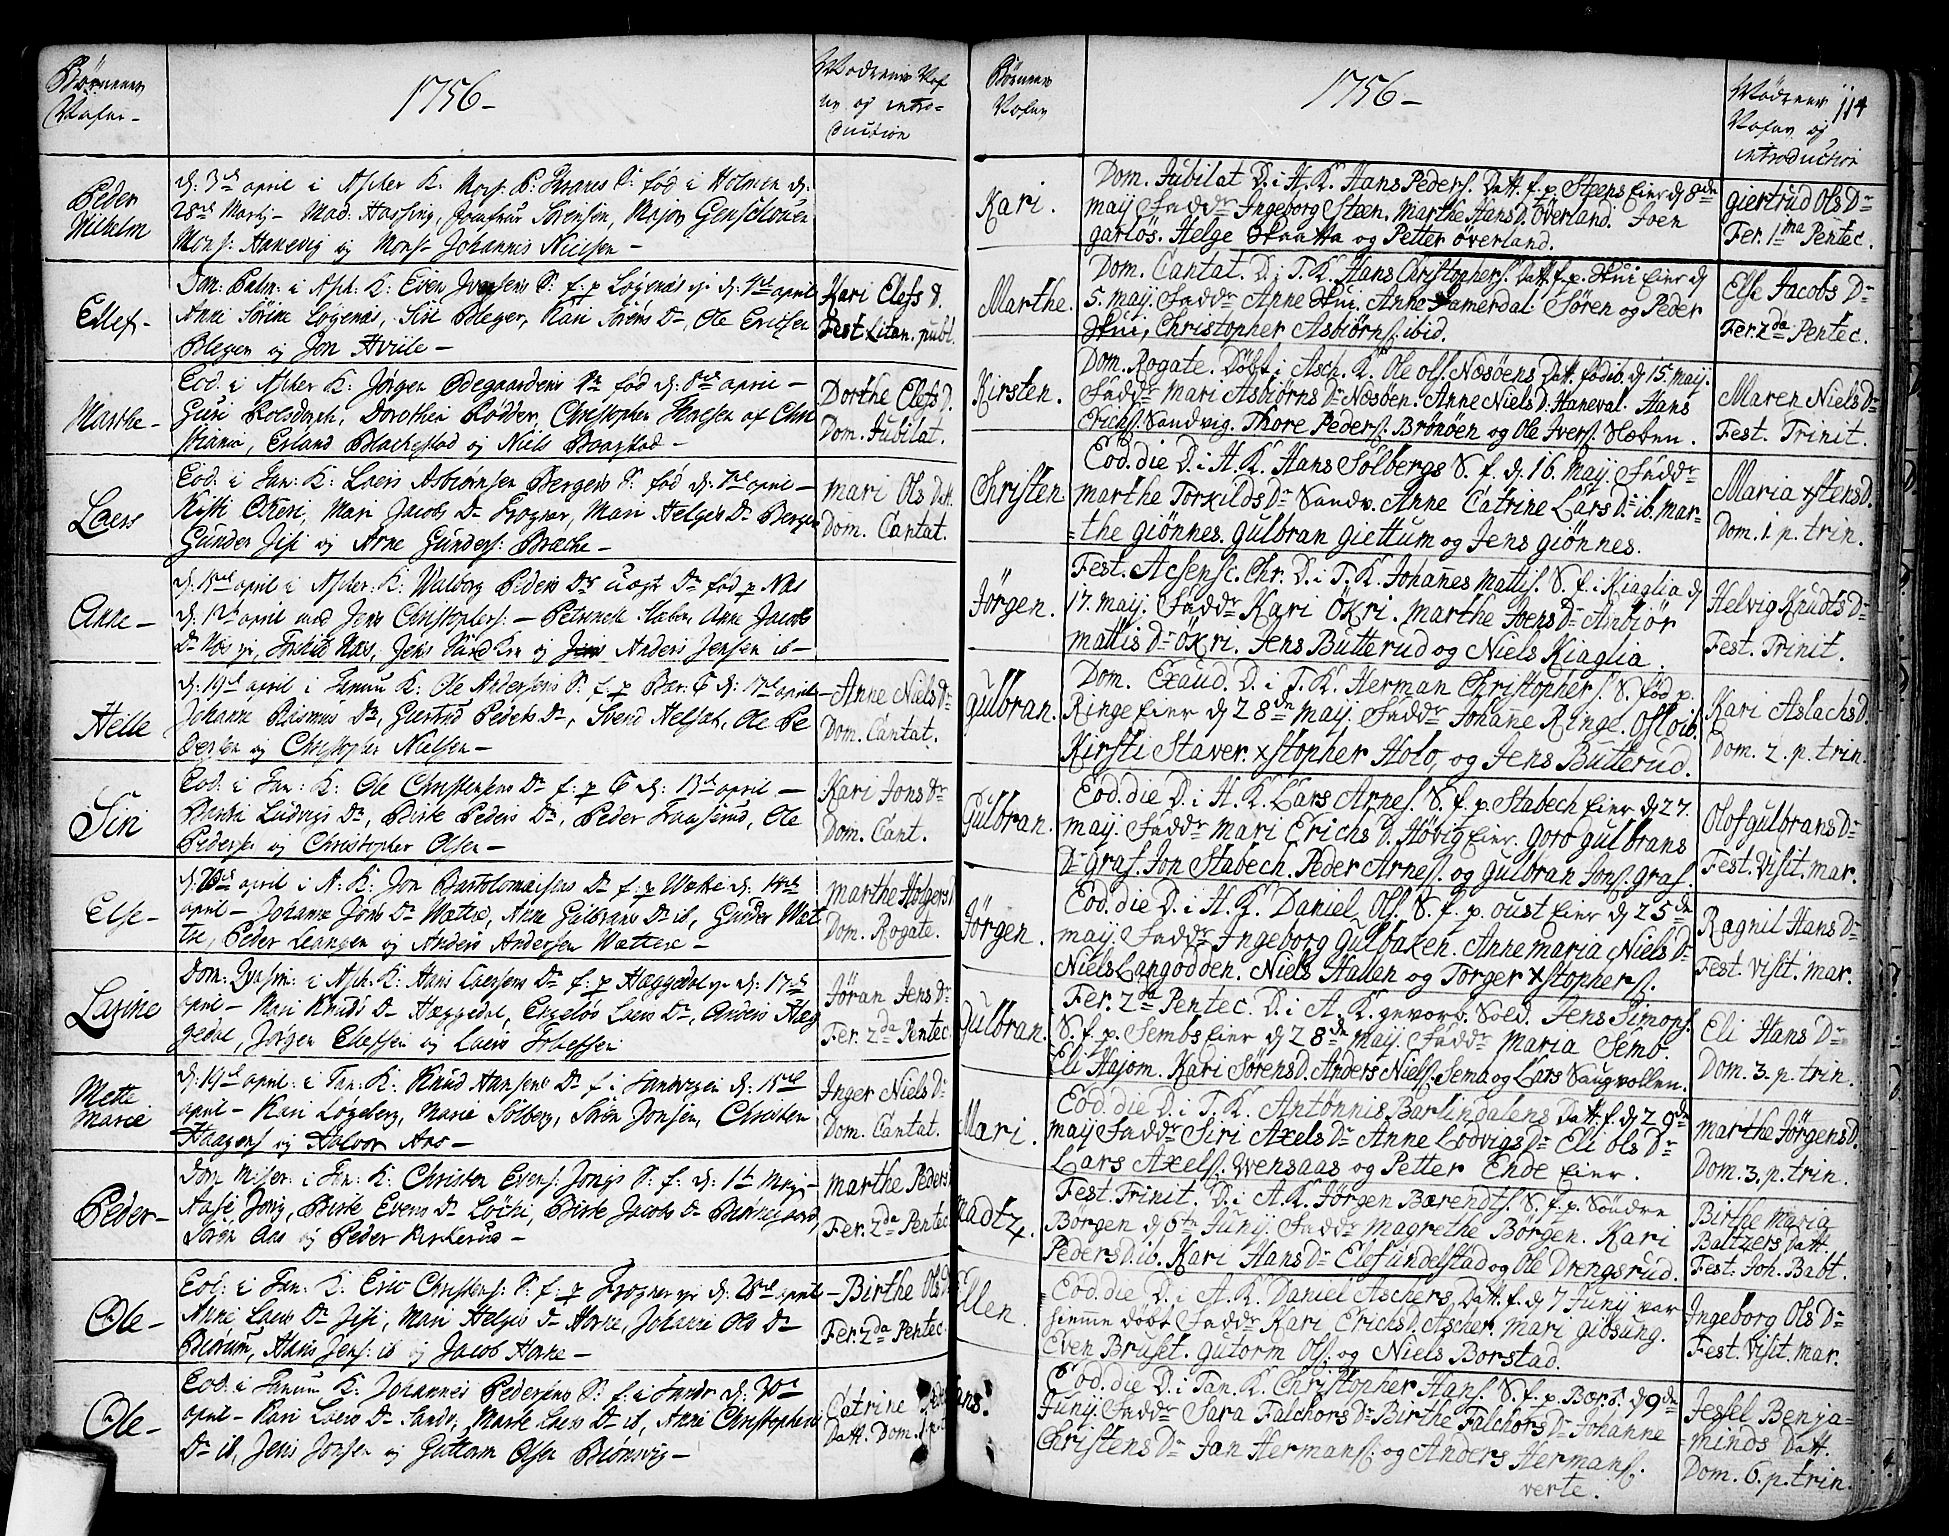 Børnenes
Nafne -
1756 -
Mødrenes Naf
ne og intro-
duction
Peder
Wilhelm
d: 3de april i Asker K: Mons: P: S: fød i Holmen d:
28de Martj - Mad. Hassing, Jomfrue Sørensen, Major
Mons: Annevig og Mons: Johannis Nielsen -
Ellef -
Dom. Palm: i Ask: K: Even S: f: p Løgenæs d:
Anne Sørine Løgenæs, Siri Bleger, Kari Sørens Dr, Ole Ericsen
Blegen og Jon
Kari Elefs D.
Fest. Litan. publ.
Marthe -
Eod: i Asker K: Jørgen Ødegaardens fød d: april -
Guri Dorothea Christopher af Chri
stiania, Erland Blachestad og Niels
Dorthe Elefs D.
Dom. Jubilat.
Laers
Eod: i Tan: K: Laers Asbiørnsen Bergers S: fød d: 7de april -
Kisti Økeri, Mari Jacobs Dr Frogner, Mari Helges Dr Berger
Gunder Jisi og Arne Gunders:
mari Ols Datt.
Dom. Cantat.
Anne -
april i Asker: K: Walborg Peders Dr Dr fød p Næs
april med Jens Christophers: - Anne Jacobs
Dr Næs Næs, Jens og Anders Jensen ib -
Helle
d: 19de april i Tanum K: Ole Andersens S: f: p d: april -
Johanne Rasmus Dr, Giertrud Peders Dr, Svend Ole Pe
dersen og Christopher Nielsen -
Anne Niels Dr
Dom. Cantat.
Siri
Eod: i Tan: K: Ole Christensens Dr f: p d: 13de april -
Ludvigs Dr, Birte Peders Dr, Peder Ole
Pedersen og Christopher Olsen -
Kari Jons Dr
Dom. Cant.
Else -
april i A: K: Jon Bartolomæisens Dr f: p Wættre d:
april - Johanne Jøns Dr Wættre, Anne Gulbrans Dr ib, Gunder Wæt
tre, Peder Leangen og Anders Andersen Wættere -
marthe Holgers D
Dom. Rogate.
Lasine
Dom: i Ask: K: Hans Laersens Dr f: p Hæggedal d: 17de
april - Mari Knuds Dr Hæggedal, Engeløs Laers Dr, Anders Hæg
gedal, Jørgen Ellefsen og Laers Tollefsen
Jøran Jens Dr
Fer: 2da Pentec.
Mette
Marie
d: 19de april: i Tan: K: Knud Hansens Dr f: i Sandvigen d: 15de
april - Kari Løgeberg, Marie Solberg, Søren Jonsen, Christen
Haagens og Halvor Aas -
Inger Niels Dr
Dom. Cantat.
Peder -
Dom Miser: i Tan: K: Christen Evens: Jongs S: f: d: 1te May -
Aase Jong, Birte Evens Dr Løchi, Birte Jacobs Dr
Søren Aas og Peder Kirkerud -
marthe Peders
Fer: 2da Pentec
Ole -
Eod: i Tan: K: Eric Christens: S: f: p Frogner d: 28de april
Anne Laers Dr Jisi, Mari Helges Dr Horne, Johanne Ols Dr
Biørum, Hans Jens: ib og Jacob Horne -
Birthe Ols D
Fer: 2da Pentec.
Ole -
Eod: i Tanum K: Johannes Pedersens S: f: i Sandv: d: 30de
april - Kari Laers Dr Sandv, Marte Laers Dr ib, Anne Christophers
Dr ib, Jens Jonsen og Guttorm Olsen Blomvig -
Catrine
Datt. Dom.
Børnenes
Nafne
1756 -
Mødrenes 114
Nafne og
introduction
Kari.
Dom. Jubilat D. i H. K. Hans Peders. Datt. f. p. Steens Eier d 8de
maij Fadd: Ingeborg Steen. Marthe Hans D. Överland. Joen
garlös. Helge Skaatta og Petter överland.
giertrud Ols Dr
Fer. 1ma Pentec.
Marthe.
Dom. Cantat. D. i T. K. Hans Christophers. Datt. f. p. Skui Eier d
5. maij Fadd: Anne Skui, Anne Tamerdal. Sören og Peder
Skui, Christopher Asbiörns. ibid.
Else Jacobs Dr
Fer. 2da Pentec.
Kirsten.
Dom. Rogate. Döbt i Asch. K. Ole Ols. Næsöens Datt. föd ib. d 15. maij.
Fadd: Mari Asbiörns Dr Næsöen. Anne Niels D. Haneval. Hans
Erichs. Sandvig. Thore Peders. Brönöen og Ole Ivers. Slæben.
Maren Niels Dr
Fest. Trinit.
Christen
Eod. die D. i H. K. Hans Sölbergs S. f. d. 16. maij. Fadd:
marthe Torkilds Dr Sandv. Anne Catrine Lars Dr ib. mar-
=the giönnes. gulbran giettum og Jens giönnes.
Maria xstens D.
Dom. 1 p. trin.
Jörgen.
Fest. Acsensc. Chr. D. i T. K. Johañes mattis. S. f. i Kiaglia d
17. maij. Fadd: Kari ÖKri. marthe Joens Dr Asbiör
mattis Dr ökri. Jens Butterud og Niels Kiaglia.
Helvig Knudts Dr
Fest. Trinit.
gulbran.
Dom. Exaud. D. i T. K. Herman Christophers. S. föd p.
Ringe Eier d 28de maij. Fadd: Johañe Ringe. Osl oib.
Kirsti Staver. xstopher Holo, og Jens Butterud.
Kari Aslachs D.
Dom. 2. p. trin.
Gulbran.
Eod. die D. i H. K. Lars Arnes. S. f. p. Stabech Eier d 27.
maij. Fadd: mari Erichs D. Hövig Eier. goro gulbrans
Dr graf. Jon Stabech. Peder Arnes. og gulbran Jons. graf.
Olof gulbrans Dr
Fest. Visit. mar.
Jörgen.
Eod. die D. i H. K. Daniel Ols. S. f. p. oust Eier d 25de
maij. Fadd: Ingeborg gulbaken. Anne maria Niels Dr
Niels Langodden. Niels Hallen og Torger xstophers.
Ragnil Hans Dr
Fest. visit. mar.
Gulbran.
Fer. 2da Pentec. D. i A. K. gevorb. Sold. Jens Simons.
S. f. p. Sembs Eier d 28de maij. Fadd: Maria Semb.
Eli Hajom. Kari Sörens D. Anders Niels. Semb og Lars Saugvollen.
Eli Hans Dr
Dom. 3. p. trin.
Mari.
Eod. die D. i T. K. Antönnis Barlindalens Datt. f. d 29de
maij Fadd: Siri Axels Dr Anne Lodvigs Dr Eli ols Dr
Lars Axels. Wensaas og Petter Ende Eier.
marthe Jörgens D.
Dom. 3. p. trin.
madtz.
Fest. Trinit. D. i A. K. Jörgen Bærendts. S. f. p. Söndre
Börgen d 6te Junij. Fadd: magrethe Börgen. Kari
Peders D. ib. Kari Hans Dr Elef undelstad og Ole Drengsrud.
Birthe Maria
Baltzers Datt.
Fest. Joh. Babt.
Ellen.
Eod. die D. i A. K. Daniel Aschers Datt. f. d 7 Junij var
hiemme döbt Fadd: Kari Erichs D. Ascher. Mari giösung.
Even Bruset. gutorm Ols. og Niels Borstad.
Ingeborg Ols Dr
Fest. Visit. mar.
ans.
Eod. die D. i Tan. K. Christopher Hans. S. f. p. Bær. v. d 9de
Junij Fadd: Sara Falchors Dr Birthe Falchors Dr Johanne
Christens Dr Jan Hermans. og Anders Hermans.
verte.
Jessel Benja-
minds Datt.
Dom. 6. p. trin.